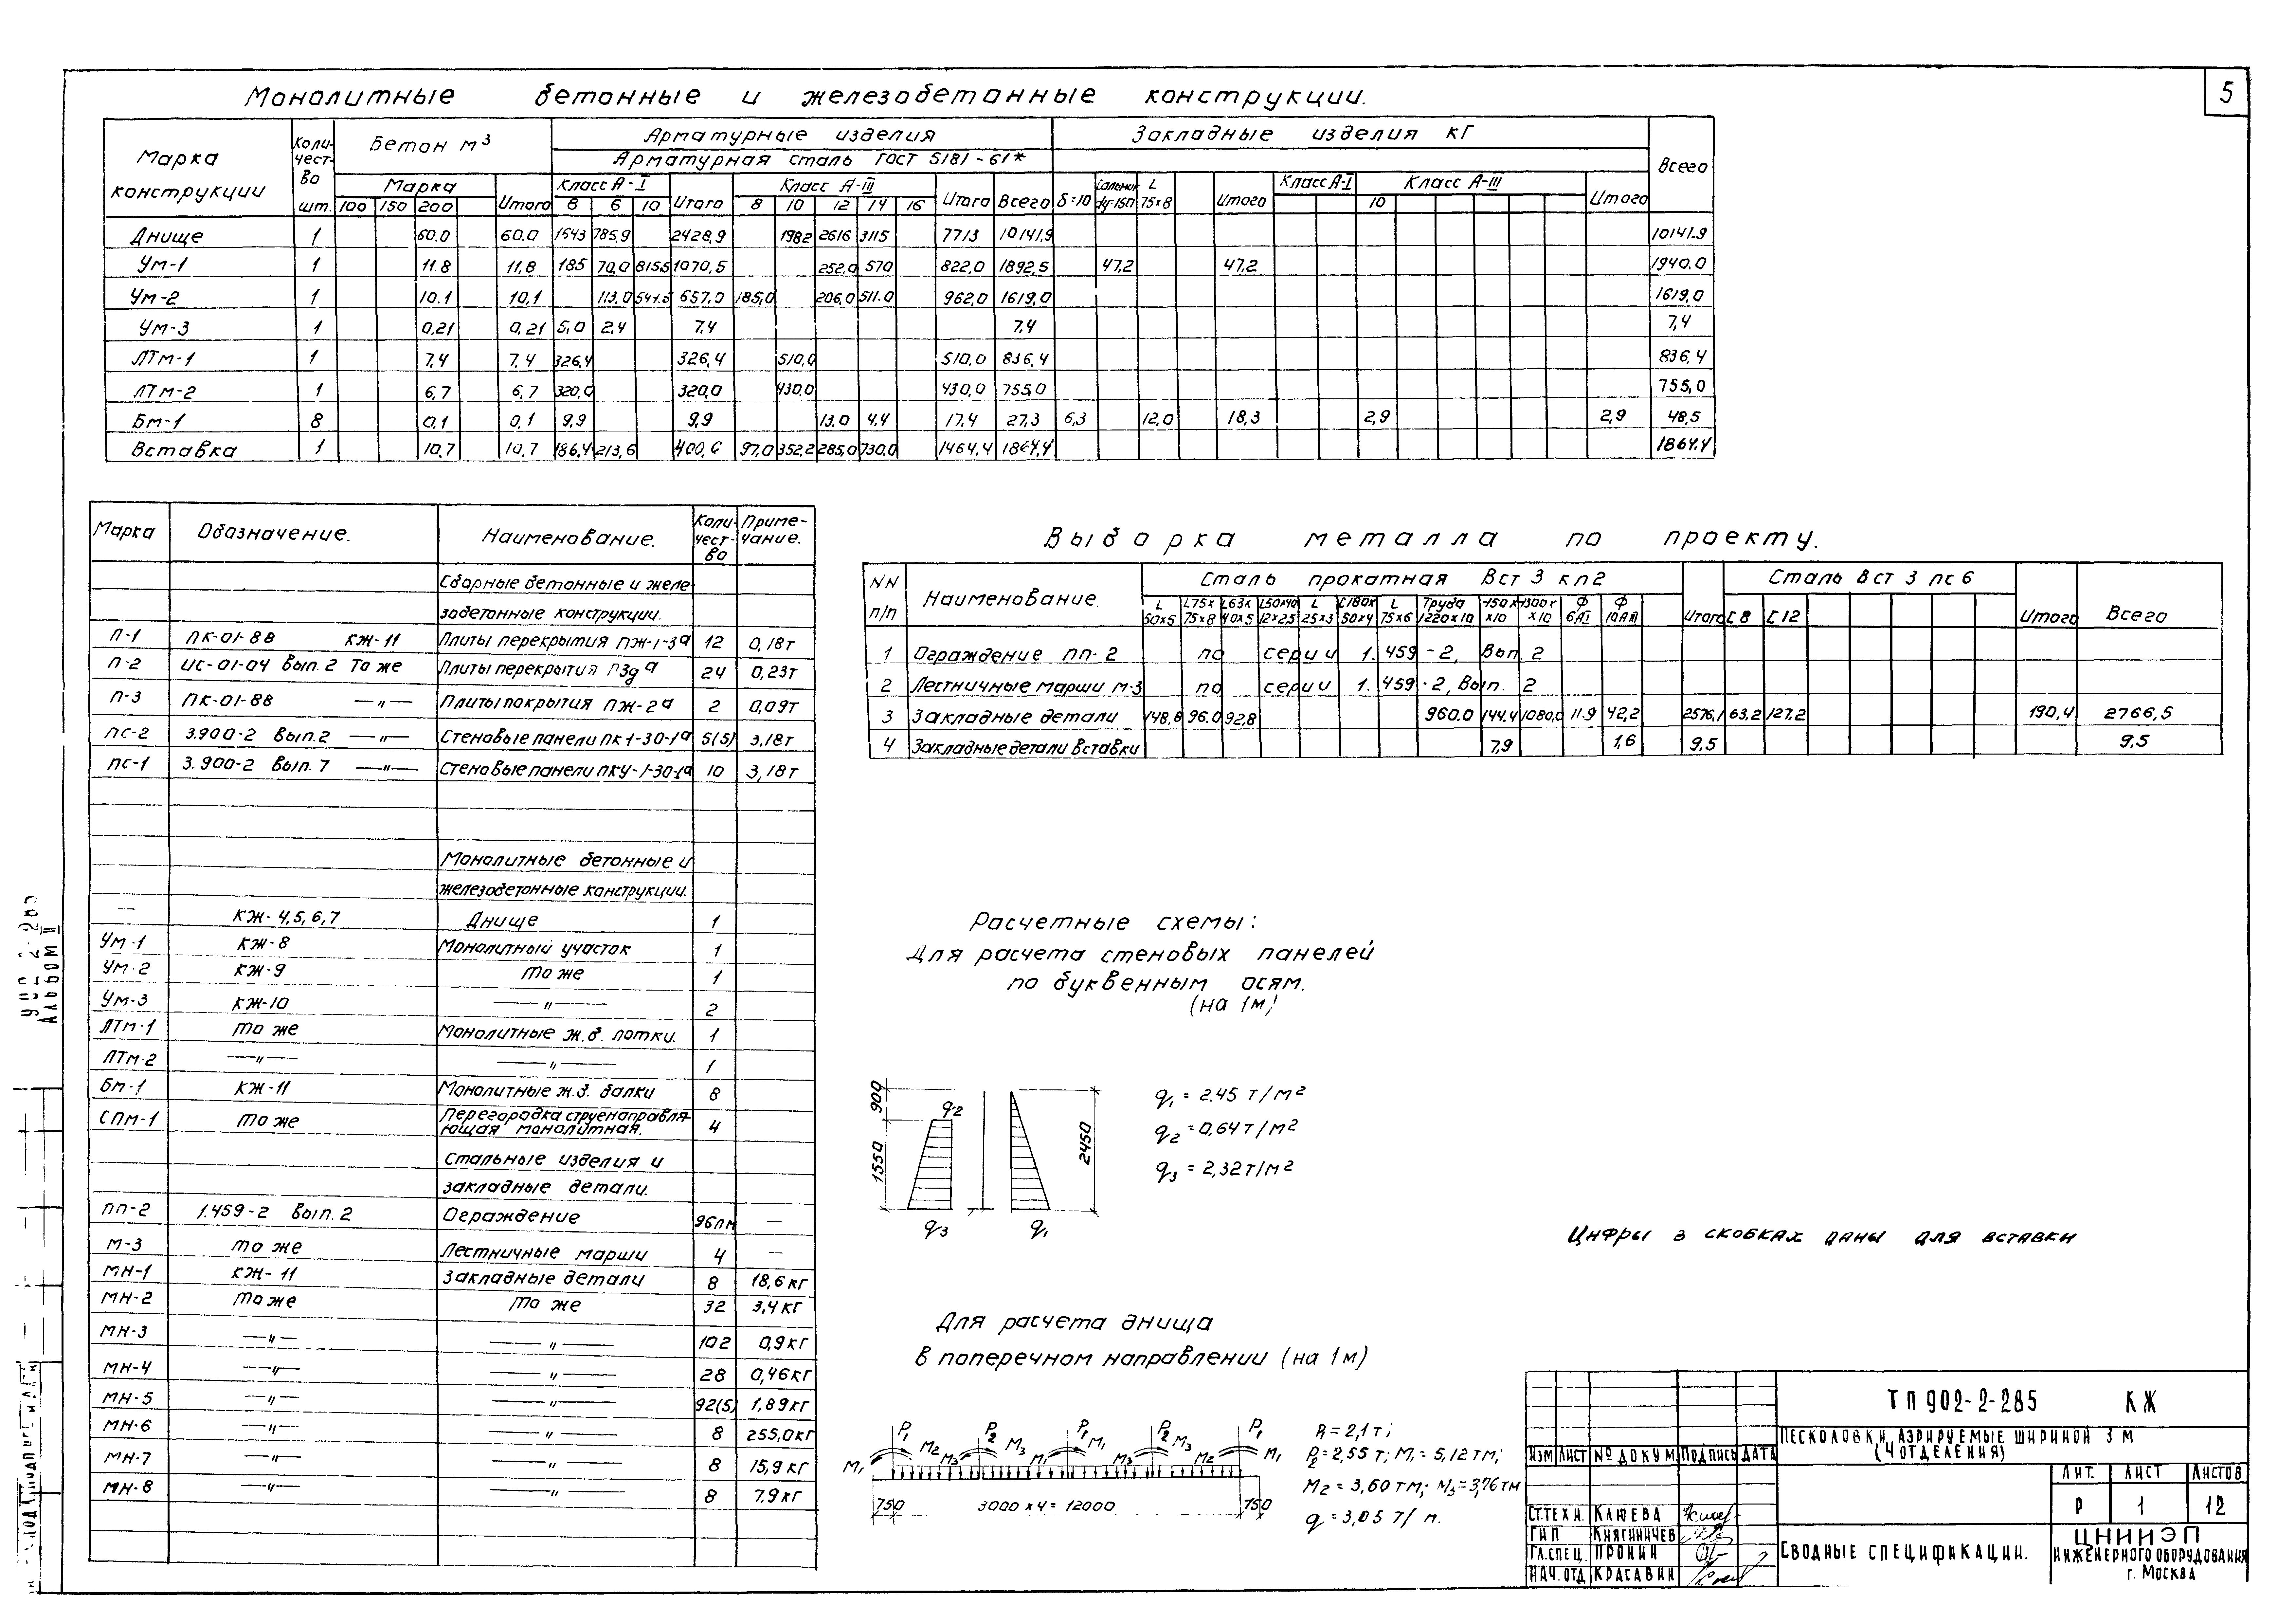 5
Монолитные бетонные и железобетонные конструкции.
Марка конструкции | Количество шт. | Бетон м³ | Арматурные изделия | Закладные изделия кг | Всего
Арматурная сталь ГОСТ 5181-61*
Марка | Итого | Класс А-I | Итого | Класс А-III | Итого | Всего | δ=10 | Сальник dу-150 | L 75×8 | Итого | Класс А-I | Класс А-III | Итого
100 | 150 | 200 | 8 | 6 | 10 | 8 | 10 | 12 | 14 | 16 | 10
Днище | 1 | 60.0 | 60.0 | 1643 | 785,9 | 2428,9 | 1982 | 2616 | 3115 | 7713 | 10141,9 | 10141.9
Ум-1 | 1 | 11.8 | 11,8 | 185 | 70,0 | 815,5 | 1070,5 | 252,0 | 570 | 822,0 | 1892,5 | 47,2 | 47,2 | 1940.0
Ум-2 | 1 | 10.1 | 10,1 | 113.0 | 541.5 | 657,0 | 185,0 | 206,0 | 511.0 | 962,0 | 1619,0 | 1619,0
Ум-3 | 1 | 0,21 | 0,21 | 5,0 | 2,4 | 7.4 | 7.4 | 7,4
ЛТм-1 | 1 | 7,4 | 7,4 | 326,4 | 326,4 | 510,0 | 510,0 | 836,4 | 836,4
ЛТм-2 | 1 | 6,7 | 6,7 | 320,0 | 320,0 | 430,0 | 430,0 | 755,0 | 755,0
Бм-1 | 8 | 0,1 | 0,1 | 9,9 | 9,9 | 13.0 | 4.4 | 17,4 | 27,3 | 6,3 | 12,0 | 18,3 | 2,9 | 2,9 | 48,5
Вставка | 1 | 10.7 | 10,7 | 186,4 | 213,6 | 400,6 | 97,0 | 352,2 | 285,0 | 730,0 | 1464,4 | 1864,4 | 1864.4
Марка | Обозначение. | Наименование. | Количество | Примечание.
Сборные бетонные и железобетонные конструкции.
П-1 | ПК-01-88 КЖ-11 | Плиты перекрытия ПЖ-1-3а | 12 | 0,18т
П-2 | ИС-01-04 Вып.2 То же | Плиты перекрытия П3да | 24 | 0,23т
П-3 | ПК-01-88 —"— | Плиты покрытия ПЖ-2а | 2 | 0,09т
ПС-2 | 3.900-2 Вып.2 —"— | Стеновые панели ПК1-30-1а | 5(5) | 3,18т
ПС-1 | 3.900-2 Вып.7 —"— | Стеновые панели ПКУ-1-30-1а | 10 | 3,18т
Монолитные бетонные и
железобетонные конструкции.
— | КЖ-4,5,6,7 | Днище | 1
Ум-1 | КЖ-8 | Монолитный участок | 1
Ум-2 | КЖ-9 | То же | 1
Ум-3 | КЖ-10 | —"— | 2
ЛТм-1 | То же | Монолитные ж.б. лотки. | 1
ЛТм-2 | —"— | —"— | 1
Бм-1 | КЖ-11 | Монолитные ж.б. балки | 8
СПм-1 | То же | Перегородка струенаправляющая монолитная. | 4
Стальные изделия и
закладные детали.
ПП-2 | 1.459-2 Вып.2 | Ограждение | 96пм | —
М-3 | То же | Лестничные марши | 4 | —
МН-1 | КЖ-11 | Закладные детали | 8 | 18,6кг
МН-2 | То же | То же | 32 | 3,4кг
МН-3 | —"— | —"— | 102 | 0,9кг
МН-4 | —"— | —"— | 28 | 0,46кг
МН-5 | —"— | —"— | 92(5) | 1,89кг
МН-6 | —"— | —"— | 8 | 255,0кг
МН-7 | —"— | —"— | 8 | 15,9кг
МН-8 | —"— | —"— | 8 | 7,9кг
Выборка металла по проекту.
NN п/п | Наименование. | Сталь прокатная Вст 3 кп2 | Итого | Сталь Вст 3 пс 6 | Итого | Всего
L 50×5 | L75×75×8 | L63×40×5 | L50×40 12×2,5 | L 25×3 | C180× 50×4 | L 75×6 | Труба 1220×10 | -150××10 | -1300××10 | Ф 6АI | Ф 10АIII | C8 | C12
1 | Ограждение ПП-2 | по серии 1.459-2, Вып. 2
2 | Лестничные марши М-3 | по серии 1.459-2, Вып. 2
3 | Закладные детали | 148,8 | 96.0 | 92,8 | 960.0 | 144.4 | 1080,0 | 11.9 | 42,2 | 2576,1 | 63.2 | 127.2 | 190,4 | 2766,5
4 | Закладные детали вставки | 7,9 | 1,6 | 9,5 | 9,5
Расчетные схемы:
Для расчета стеновых панелей
по буквенным осям.
(на 1м)
900
1550
2450
q2
q3
q1
q1 = 2.45 т/м2
q2 = 0,64т/м2
q3 = 2,32т/м2
Цифры в скобках даны для вставки
Для расчета днища
в поперечном направлении (на 1м)
P1 P2 P1 P2 P1
M1 M2 M3 M3 M1 M1 M3 M3 M2 M1
750 3000×4=12000 750
P1=2,1т;
P2=2,55т; M1=5,12тм;
M2=3,60тм; M3=3,76тм
q=3,05 т/п.
ТП 902-2-285 КЖ
Песколовки, аэрируемые шириной 3 м
(4 отделения)
Изм Лист № докум. Подпись Дата
Лит. Лист Листов
Р 1 12
Ст.техн. Клюева
ГИП Княгиничев
Гл.спец. Пронин
Нач.отд Красавин
Сводные спецификации.
ЦНИИЭП
инженерного оборудования
г. Москва
Альбом II